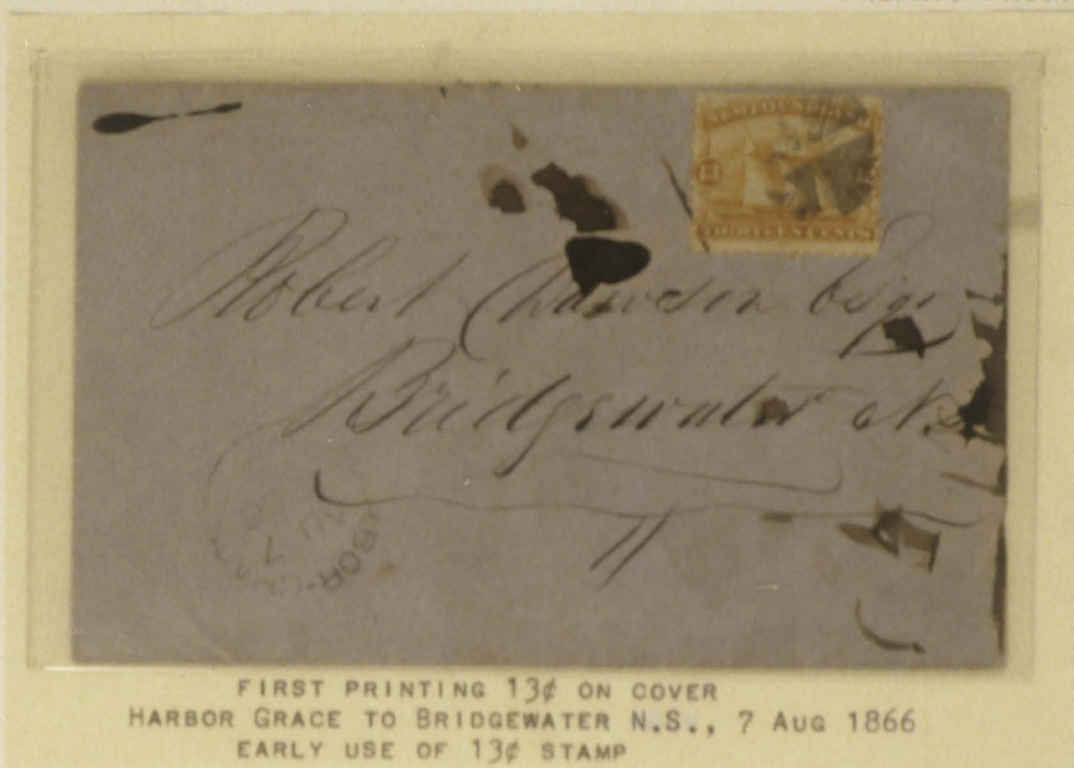 NEWFOUNDLAND
13
THIRTEEN CENTS
Robert Dawson Esqr
Bridgewater N.S.
7
FIRST PRINTING 13¢ ON COVER
HARBOR GRACE TO BRIDGEWATER N.S., 7 AUG 1866
EARLY USE OF 13¢ STAMP